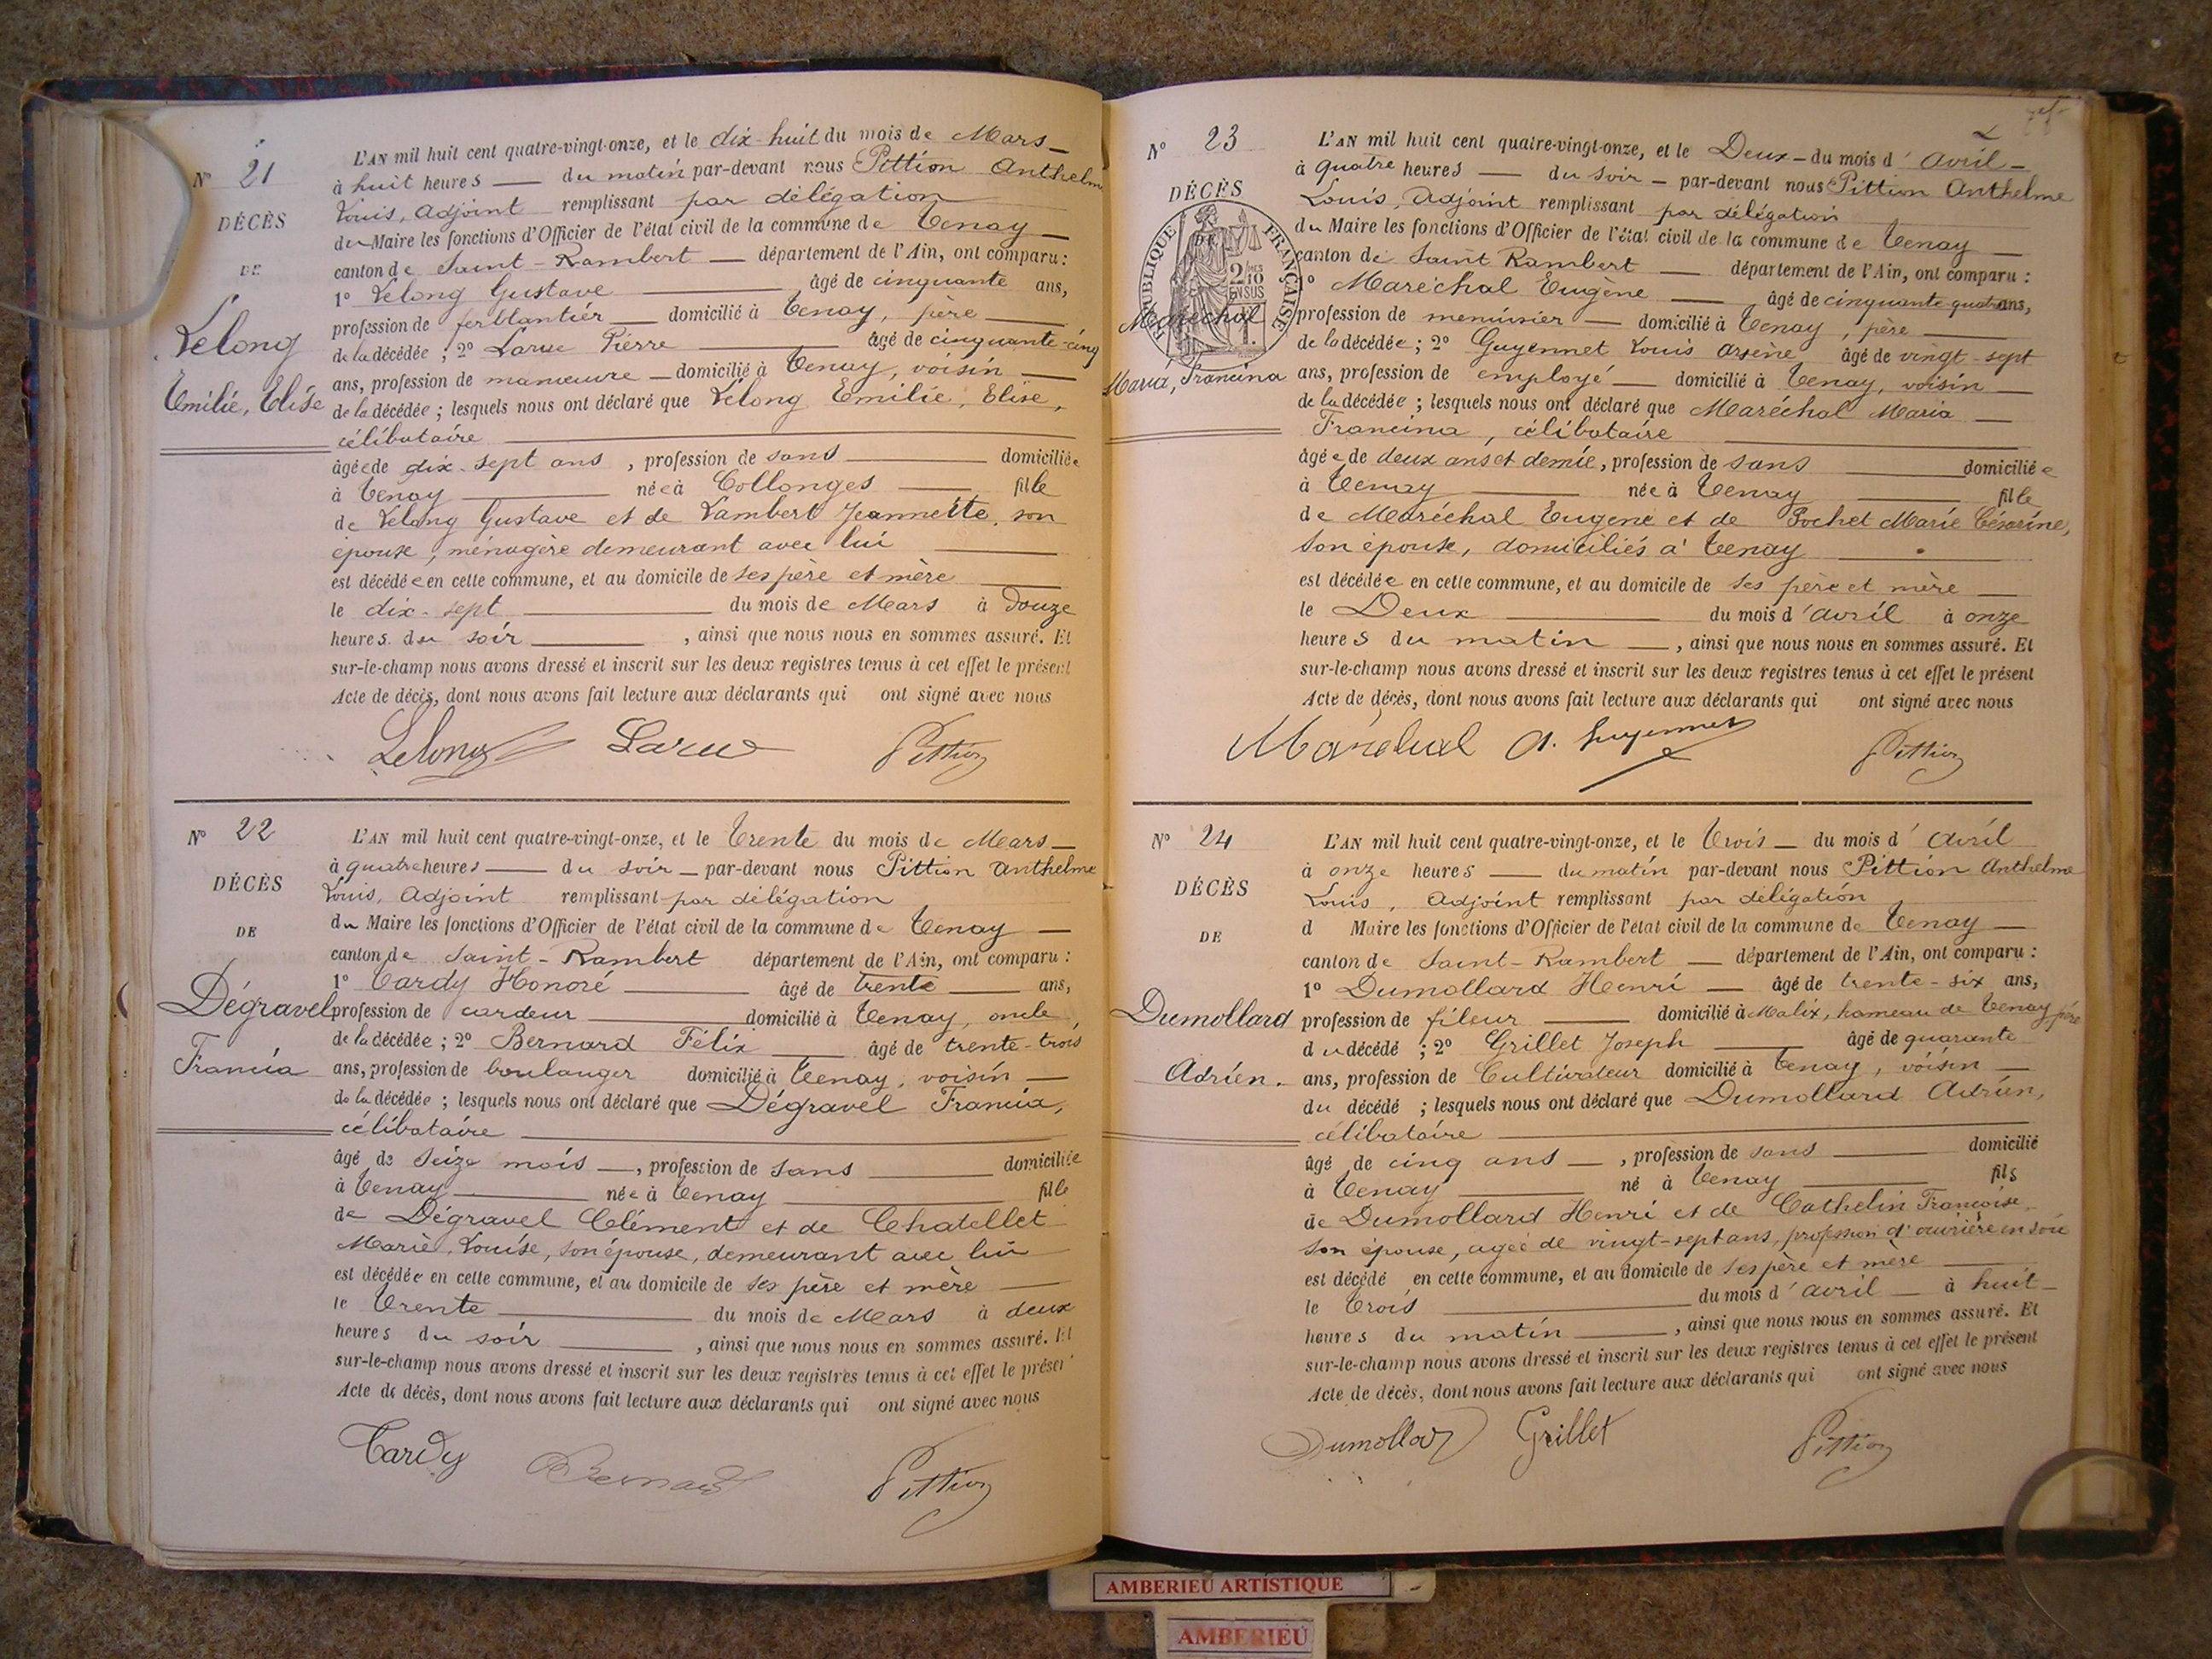 N° 21
DÉCÈS
DE
Lelong
Emilie, Elise
L'AN mil huit cent quatre-vingt-onze, et le dix-huit du mois de Mars
à huit heures du matin par-devant nous Pittion Anthelme
Louis, Adjoint remplissant par délégation
du Maire les fonctions d'Officier de l'état civil de la commune de Tenay
canton de Saint-Rambert département de l'Ain, ont comparu :
1° Lelong Gustave âgé de cinquante ans,
profession de ferblantier domicilié à Tenay, père
de la décédée ; 2° Larue Pierre âgé de cinquante-cinq
ans, profession de manœuvre domicilié à Tenay, voisin
de la décédée ; lesquels nous ont déclaré que Lelong Emilie, Elise,
célibataire
âgée de dix-sept ans, profession de sans domiciliée
à Tenay née à Collonges fille
de Lelong Gustave et de Lambert Jeannette, son
épouse, ménagère demeurant avec lui
est décédée en cette commune, et au domicile de ses père et mère
le dix-sept du mois de Mars à Douze
heures du soir, ainsi que nous nous en sommes assuré. Et
sur-le-champ nous avons dressé et inscrit sur les deux registres tenus à cet effet le présent
Acte de décès, dont nous avons fait lecture aux déclarants qui ont signé avec nous
Lelong Larue Pittion
N° 22
DÉCÈS
DE
Dégravel
Francia
L'AN mil huit cent quatre-vingt-onze, et le Trente du mois de Mars
à quatre heures du soir par-devant nous Pittion Anthelme
Louis, Adjoint remplissant par délégation
du Maire les fonctions d'Officier de l'état civil de la commune de Tenay
canton de Saint-Rambert département de l'Ain, ont comparu :
1° Tardy Honoré âgé de trente ans,
profession de cardeur domicilié à Tenay, oncle
de la décédée ; 2° Bernard Félix âgé de trente-trois
ans, profession de boulanger domicilié à Tenay, voisin
de la décédée ; lesquels nous ont déclaré que Dégravel Francia,
célibataire
âgé de seize mois, profession de sans domiciliée
à Tenay née à Tenay fille
de Dégravel Clément et de Chatellet
Marie, Louise, son épouse, demeurant avec lui
est décédée en cette commune, et au domicile de ses père et mère
le Trente du mois de Mars à deux
heures du soir, ainsi que nous nous en sommes assuré. Et
sur-le-champ nous avons dressé et inscrit sur les deux registres tenus à cet effet le présent
Acte de décès, dont nous avons fait lecture aux déclarants qui ont signé avec nous
Tardy Bernard Pittion
N° 23
DÉCÈS
DE
RÉPUBLIQUE FRANÇAISE
2/10 EN SUS
Maréchal
Maria, Francina
L'AN mil huit cent quatre-vingt-onze, et le Deux du mois d'avril
à quatre heures du soir par-devant nous Pittion Anthelme
Louis, Adjoint remplissant par délégation
du Maire les fonctions d'Officier de l'état civil de la commune de Tenay
canton de Saint Rambert département de l'Ain, ont comparu :
1° Maréchal Eugène âgé de cinquante-quatre ans,
profession de menuisier domicilié à Tenay, père
de la décédée ; 2° Guyennet Louis Arsène âgé de vingt-sept
ans, profession de employé domicilié à Tenay, voisin
de la décédée ; lesquels nous ont déclaré que Maréchal Maria
Francina, célibataire
âgée de deux ans et demie, profession de sans domiciliée
à Tenay née à Tenay fille
de Maréchal Eugène et de Pochet Marie Césarine,
son épouse, domiciliés à Tenay
est décédée en cette commune, et au domicile de ses père et mère
le Deux du mois d'avril à onze
heures du matin, ainsi que nous nous en sommes assuré. Et
sur-le-champ nous avons dressé et inscrit sur les deux registres tenus à cet effet le présent
Acte de décès, dont nous avons fait lecture aux déclarants qui ont signé avec nous
Maréchal A. Guyennet Pittion
N° 24
DÉCÈS
DE
Dumollard
Adrien.
L'AN mil huit cent quatre-vingt-onze, et le Trois du mois d'avril
à onze heures du matin par-devant nous Pittion Anthelme
Louis, Adjoint remplissant par délégation
d Maire les fonctions d'Officier de l'état civil de la commune de Tenay
canton de Saint-Rambert département de l'Ain, ont comparu :
1° Dumollard Henri âgé de trente-six ans,
profession de fileur domicilié à Malix, hameau de Tenay père
du décédé ; 2° Grillet Joseph âgé de quarante
ans, profession de Cultivateur domicilié à Tenay, voisin
du décédé ; lesquels nous ont déclaré que Dumollard Adrien,
célibataire
âgé de cinq ans, profession de sans domicilié
à Tenay né à Tenay fils
de Dumollard Henri et de Cathelin Françoise
son épouse, agée de vingt-sept ans, profession d'ouvrière en soie
est décédé en cette commune, et au domicile de ses père et mère
le Trois du mois d'avril à huit
heures du matin, ainsi que nous nous en sommes assuré. Et
sur-le-champ nous avons dressé et inscrit sur les deux registres tenus à cet effet le présent
Acte de décès, dont nous avons fait lecture aux déclarants qui ont signé avec nous
Dumollard Grillet Pittion
AMBERIEU ARTISTIQUE
AMBERIEU